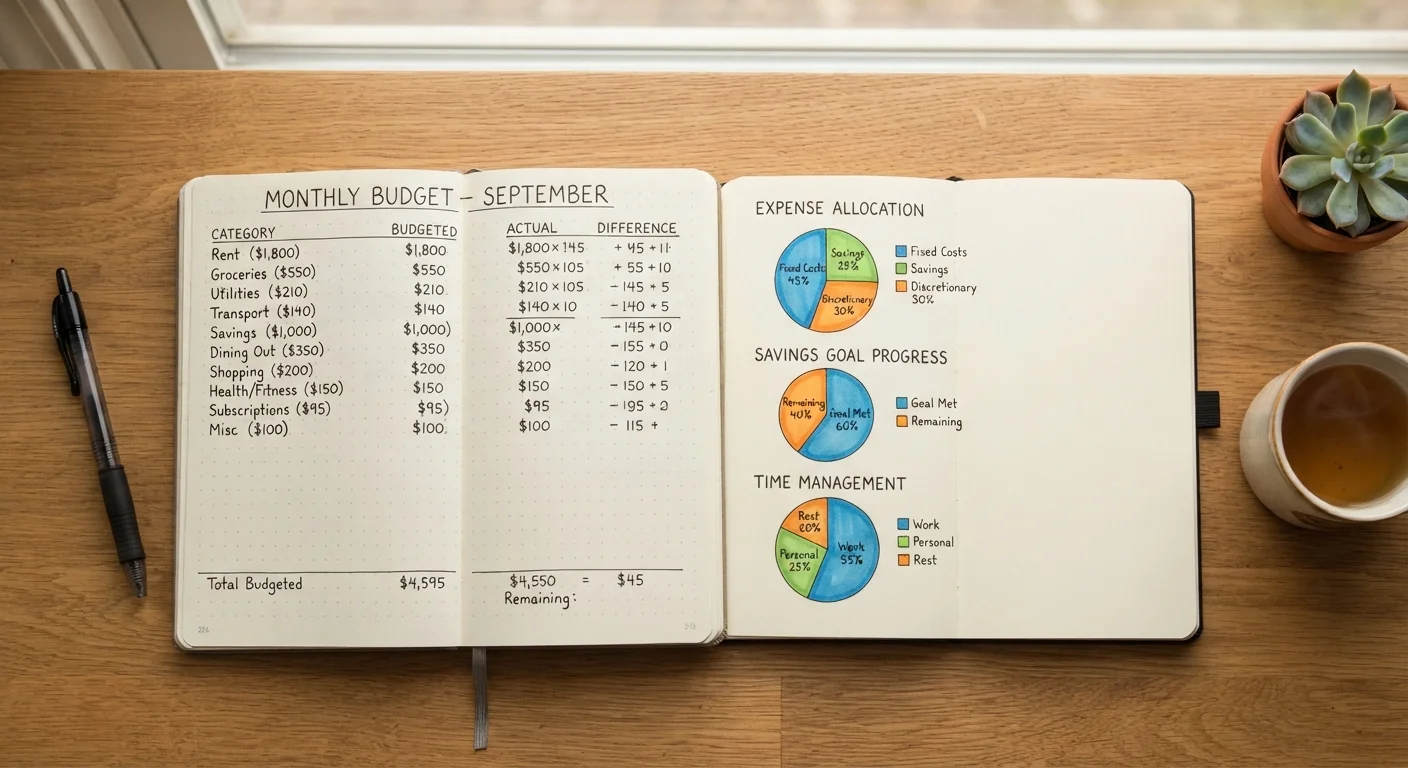 MONTHLY BUDGET – SEPTEMBER
CATEGORY BUDGETED ACTUAL DIFFERENCE
Rent ($1,800) $1,800 $1,800 × 145 + 45 + 11
Groceries ($550) $550 $550 × 105 + 55 + 10
Utilities ($210) $210 $210 × 105 - 145 + 5
Transport ($140) $140 $140 × 10 - 140 + 5
Savings ($1,000) $1,000) $1,000× - 145 + 10
Dining Out ($350) $350 $350 - 155 + 0
Shopping ($200) $200 $200 - 120 + 1
Health/Fitness ($150) $150 $150 - 150 + 5
Subscriptions ($95) $95) $95 - 195 + 2
Misc ($100) $100 $100 - 115 +
Total Budgeted $4,595 $4,550 = $45
Remaining:
EXPENSE ALLOCATION
Fixed Costs
45%
Savings
25%
30%
Fixed Costs
Savings
Discretionary
30%
SAVINGS GOAL PROGRESS
Remaining
40%
Met
60%
Geal Met
Remaining
TIME MANAGEMENT
Rest
20%
Personal
25%
Work
55%
Work
Personal
Rest